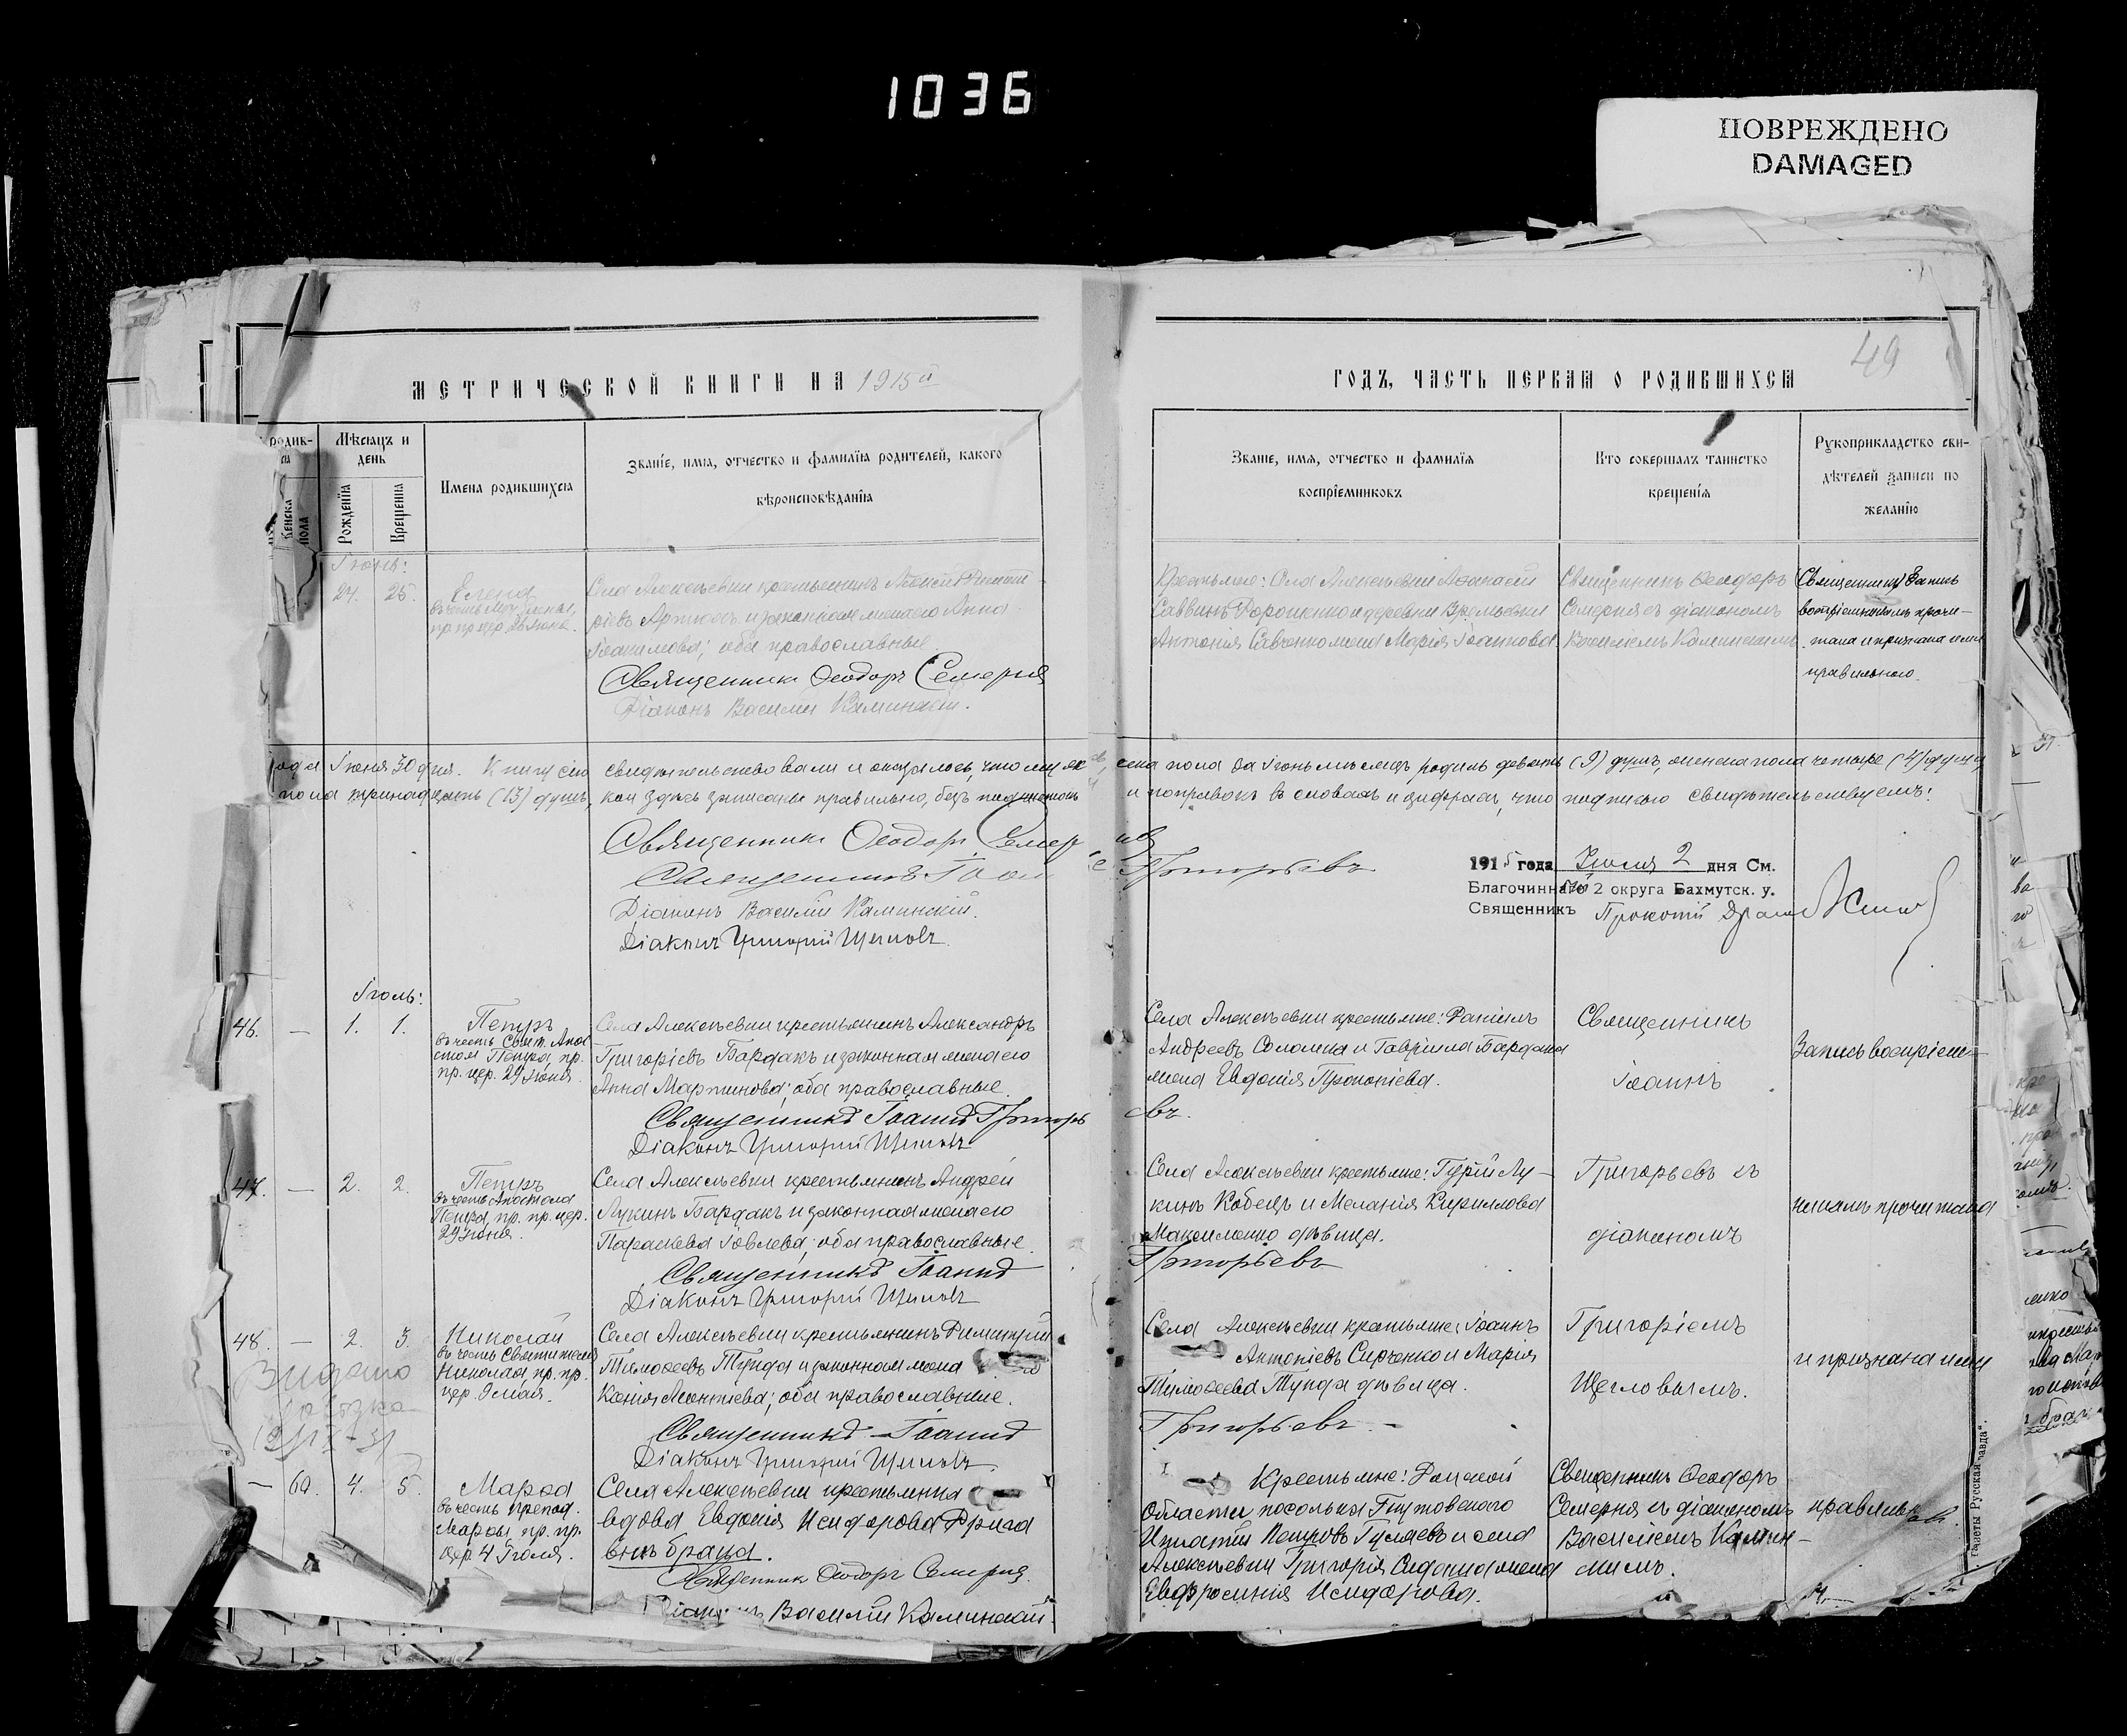 1036
ПОВРЕЖДЕНО
DAMAGED
49
МЕТРИЧЕСКОЙ КНИГИ НА 1915й
ГОДЪ, ЧАСТЬ ПЕРВАЯ О РОДИВШИХСЯ
Мѣсяцъ и день
Рожденія
Крещенія
Женска пола
Имена родившихся
Званіе, имя, отчество и фамилія родителей, какого
вѣроисповѣданія
Званіе, имя, отчество и фамилія
воспріемниковъ
Кто совершалъ таинство
крещенія
Рукоприкладство сви-
дѣтелей записи по
желанію
Іюнь:
24. 25. Елена
Села Алексѣевки крестьянинъ Алексѣй Димитрі-
евъ и законная жена его Анна
Іоакимова; оба православные.
Священникъ Ѳеодоръ Семерня
Діаконъ Василій Каминскій.
Крестьяне: Села Алексѣевки Аѳанасій
Саввинъ Дорошенко и деревни
Антонія Савченко жена Марія Іоаннова.
Священникъ Ѳеодоръ
Семерня съ діакономъ
Василіемъ Каминскимъ.
Запись
воспріемникамъ прочи-
тана и признана ими
правильною.
года Іюня 30 дня. Книгу сію свидѣтельствовали и оказалось, что мужеска пола за Іюнь мѣсяцъ родилось девять (9) душъ, женска пола четыре (4) души,
пола тринадцать (13) душъ, кои здѣсь записаны правильно, безъ подчистокъ и поправокъ въ словахъ и цифрахъ, что подписью свидѣтельствуемъ:
Священникъ Ѳеодоръ Семерня
Священникъ Іоаннъ Григорьевъ
Діаконъ Василій Каминскій.
Діаконъ Григорій Щегловъ
1915 года Іюля 2 дня См.
Благочинный 2 округа Бахмутск. у.
Священникъ Прокопій
Іюль:
46. — 1. 1. Петръ
въ честь Свят. Апос-
тола Петра, пр.
пр. цер. 29 Іюня.
Села Алексѣевки крестьянинъ Александръ
Григоріевъ Бардакъ и законная жена его
Анна Мартинова; оба православные.
Священникъ Іоаннъ Григорьевъ.
Діаконъ Григорій Щегловъ
Села Алексѣевки крестьяне: Даніилъ
Андреевъ Соломка и Гавріила Бардака
жена Евдокія Прокопіева.
Священникъ
Іоаннъ
Запись воспріем-
47. — 2. 2. Петръ
въ честь Апостола
Петра, пр. пр. цер.
29 Іюня.
Села Алексѣевки крестьянинъ Андрей
Лукинъ Бардакъ и законная жена его
Параскева Іовлева; оба православные.
Священникъ Іоаннъ Григорьевъ
Діаконъ Григорій Щегловъ
Села Алексѣевки крестьяне: Гурій Лу-
кинъ Кобецъ и Меланія Кириллова
Максименко дѣвица.
Григорьевъ съ
діакономъ
никамъ прочитана
48. — 2. 3. Николай
въ честь Святителя
Николая, пр. пр.
цер. 9 мая.
Села Алексѣевки крестьянинъ Димитрій
Тимоѳеевъ Тунда и законная жена его
Ксенія Леонтіева; оба православные.
Священникъ Іоаннъ Григорьевъ
Діаконъ Григорій Щегловъ
Села Алексѣевки крестьяне: Іоаннъ
Антоніевъ Сирченко и Марія
Тимоѳеева Тунда дѣвица.
Григоріемъ
Щегловымъ.
и признана ими
Видано
— 60. 4. 5. Марѳа
въ честь препод.
Марѳы, пр. пр.
цер. 4 Іюля.
Села Алексѣевки крестьянка
вдова Евдокія Исидорова Дрига
внѣ брака.
Священникъ Ѳеодоръ Семерня.
Діаконъ Василій Каминскій
Крестьяне: Донской
Области поселка
Игнатій Петровъ Гуляевъ и села
Алексѣевки Григорія Сидаша жена
Евфросинія Исидорова.
Священникъ Ѳеодоръ
Семерня съ діакономъ
Василіемъ Камин-
скимъ.
правильной.